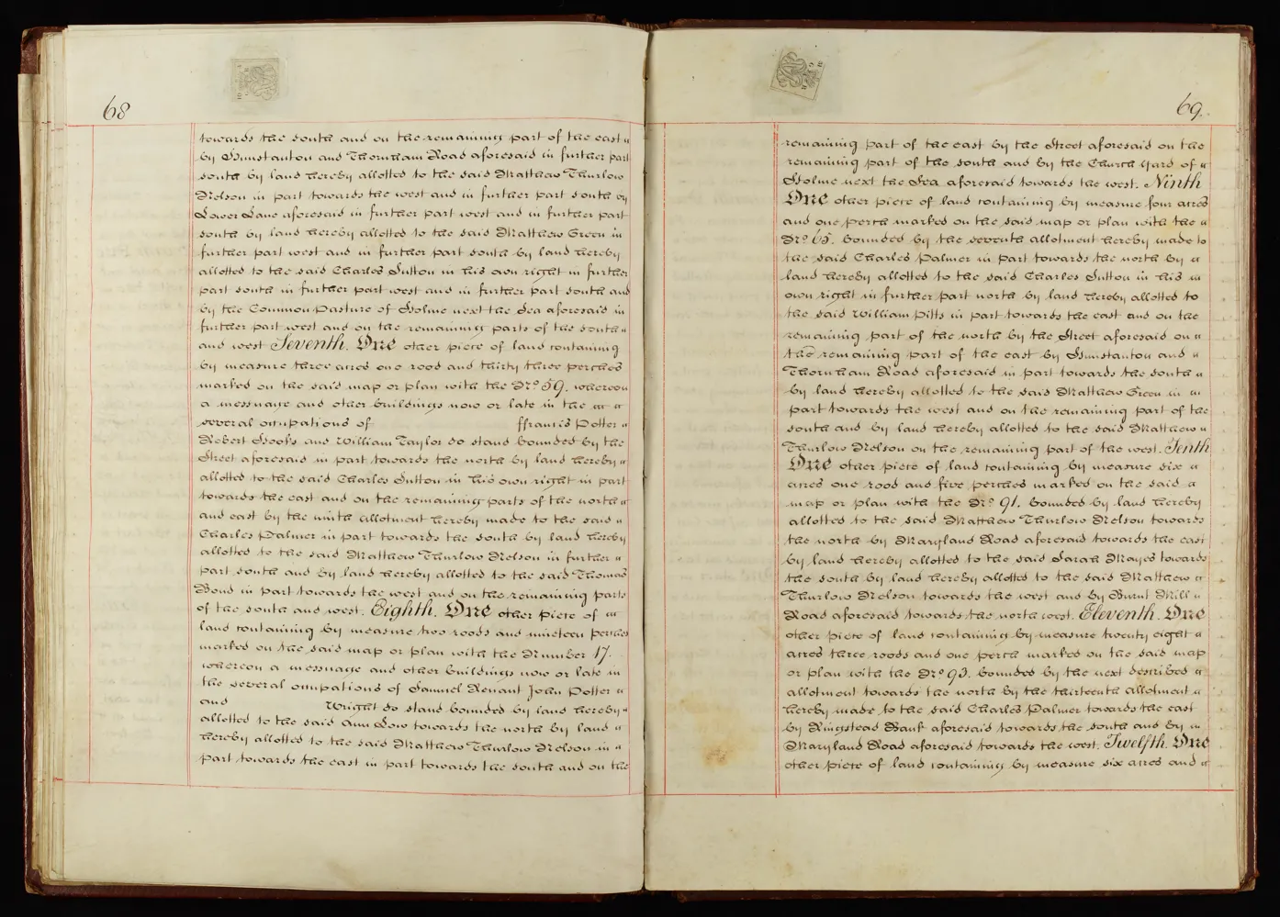 68
towards the south and on the remaining part of the east "
by Hunstanton and Thornham Road aforesaid in further part
south by land hereby allotted to the said Matthew Thurlow
Nelson in part towards the west and in further part south by
Lower Lane aforesaid in further part west and in further part
south by land hereby allotted to the said Matthew Green in
further part west and in further part south by land hereby
allotted to the said Charles Sutton in his own right in further
part south in further part west and in further part south and
by the Common Pasture of Holme next the Sea aforesaid in
further part west and on the remaining parts of the south "
and west Seventh. One other piece of land containing
by measure three acres one rood and thirty three perches
marked on the said map or plan with the No. 59. whereon
a messuage and other buildings now or late in the " "
several occupations of ffrancis Potter "
Robert Hooks and William Taylor do stand bounded by the
Street aforesaid in part towards the north by land hereby "
allotted to the said Charles Sutton in his own right in part
towards the east and on the remaining parts of the north "
and east by the ninth allotment hereby made to the said "
Charles Palmer in part towards the south by land hereby
allotted to the said Matthew Thurlow Nelson in further "
part south and by land hereby allotted to the said Thomas
Bond in part towards the west and on the remaining parts
of the south and west. Eighth. One other piece of "
land containing by measure two roods and nineteen perches
marked on the said map or plan with the Number 17.
whereon a messuage and other buildings now or late in
the several occupations of Samuel Renaut John Potter "
and Wright do stand bounded by land hereby "
allotted to the said Ann Low towards the north by land "
hereby allotted to the said Matthew Thurlow Nelson in "
part towards the east in part towards the south and on the
69.
remaining part of the east by the Street aforesaid on the
remaining part of the south and by the Church Yard of "
Holme next the Sea aforesaid towards the west. Ninth
One other piece of land containing by measure four acres
and one perch marked on the said map or plan with the "
No. 65. bounded by the seventh allotment hereby made to
the said Charles Palmer in part towards the north by "
land hereby allotted to the said Charles Sutton in his "
own right in further part north by land hereby allotted to
the said William Pitts in part towards the east and on the
remaining part of the north by the Street aforesaid on "
the remaining part of the east by Hunstanton and "
Thornham Road aforesaid in part towards the south "
by land hereby allotted to the said Matthew Green in "
part towards the west and on the remaining part of the
south and by land hereby allotted to the said Matthew "
Thurlow Nelson on the remaining part of the west. Tenth
One other piece of land containing by measure six "
acres one rood and five perches marked on the said "
map or plan with the No. 91. bounded by land hereby
allotted to the said Matthew Thurlow Nelson towards
the north by Maryland Road aforesaid towards the east
by land hereby allotted to the said Sarah Mayes towards
the south by land hereby allotted to the said Matthew "
Thurlow Nelson towards the west and by Burnt Mill "
Road aforesaid towards the north west. Eleventh. One
other piece of land containing by measure twenty eight "
acres three roods and one perch marked on the said map
or plan with the No. 93. bounded by the next described "
allotment towards the north by the thirteenth allotment "
hereby made to the said Charles Palmer towards the east
by Ringstead Bank aforesaid towards the south and by "
Maryland Road aforesaid towards the west. Twelfth. One
other piece of land containing by measure six acres and "